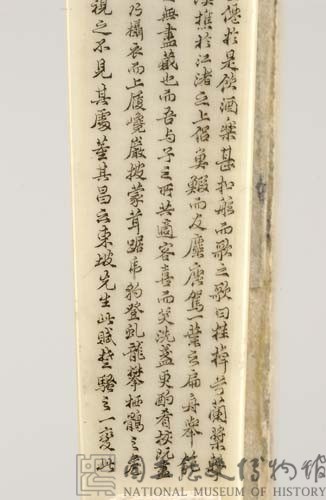 僊於是飲酒樂甚扣舷而歌之歌曰桂棹兮蘭槳
漁樵於江渚之上侶魚鰕而友麋鹿駕一葉之扁舟舉
無盡藏也而吾與子之所共適客喜而笑洗盞更酌肴核既盡
乃攝衣而上履巉巖披蒙茸踞虎豹登虬龍攀栖鶻之危
視之不見其處董其昌云東坡先生此賦楚騷之一變此
國立歷史博物館
NATIONAL MUSEUM OF HISTORY